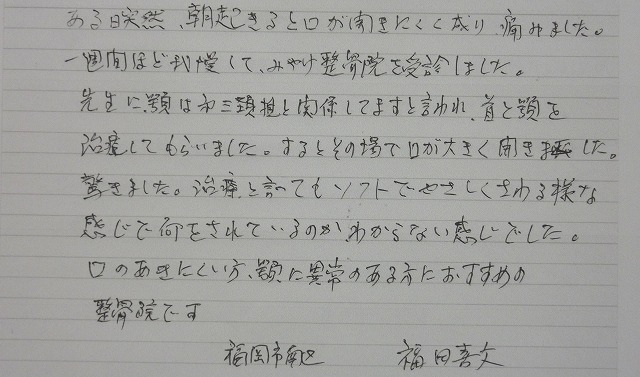 ある日突然、朝起きると口が開きにくく成り、痛みました。
一週間ほど我慢して、みやけ整骨院を受診しました。
先生に、顎は第三頚椎と関係してますと言われ、首と顎を
治療してもらいました。するとその場で口が大きく開きました。
驚きました。治療と言ってもソフトでやさしくさわる様な
感じで何をされているのかわからない感じでした。
口のあきにくい方、顎に異常のある方におすすめの
整骨院です
福岡市南区 福田